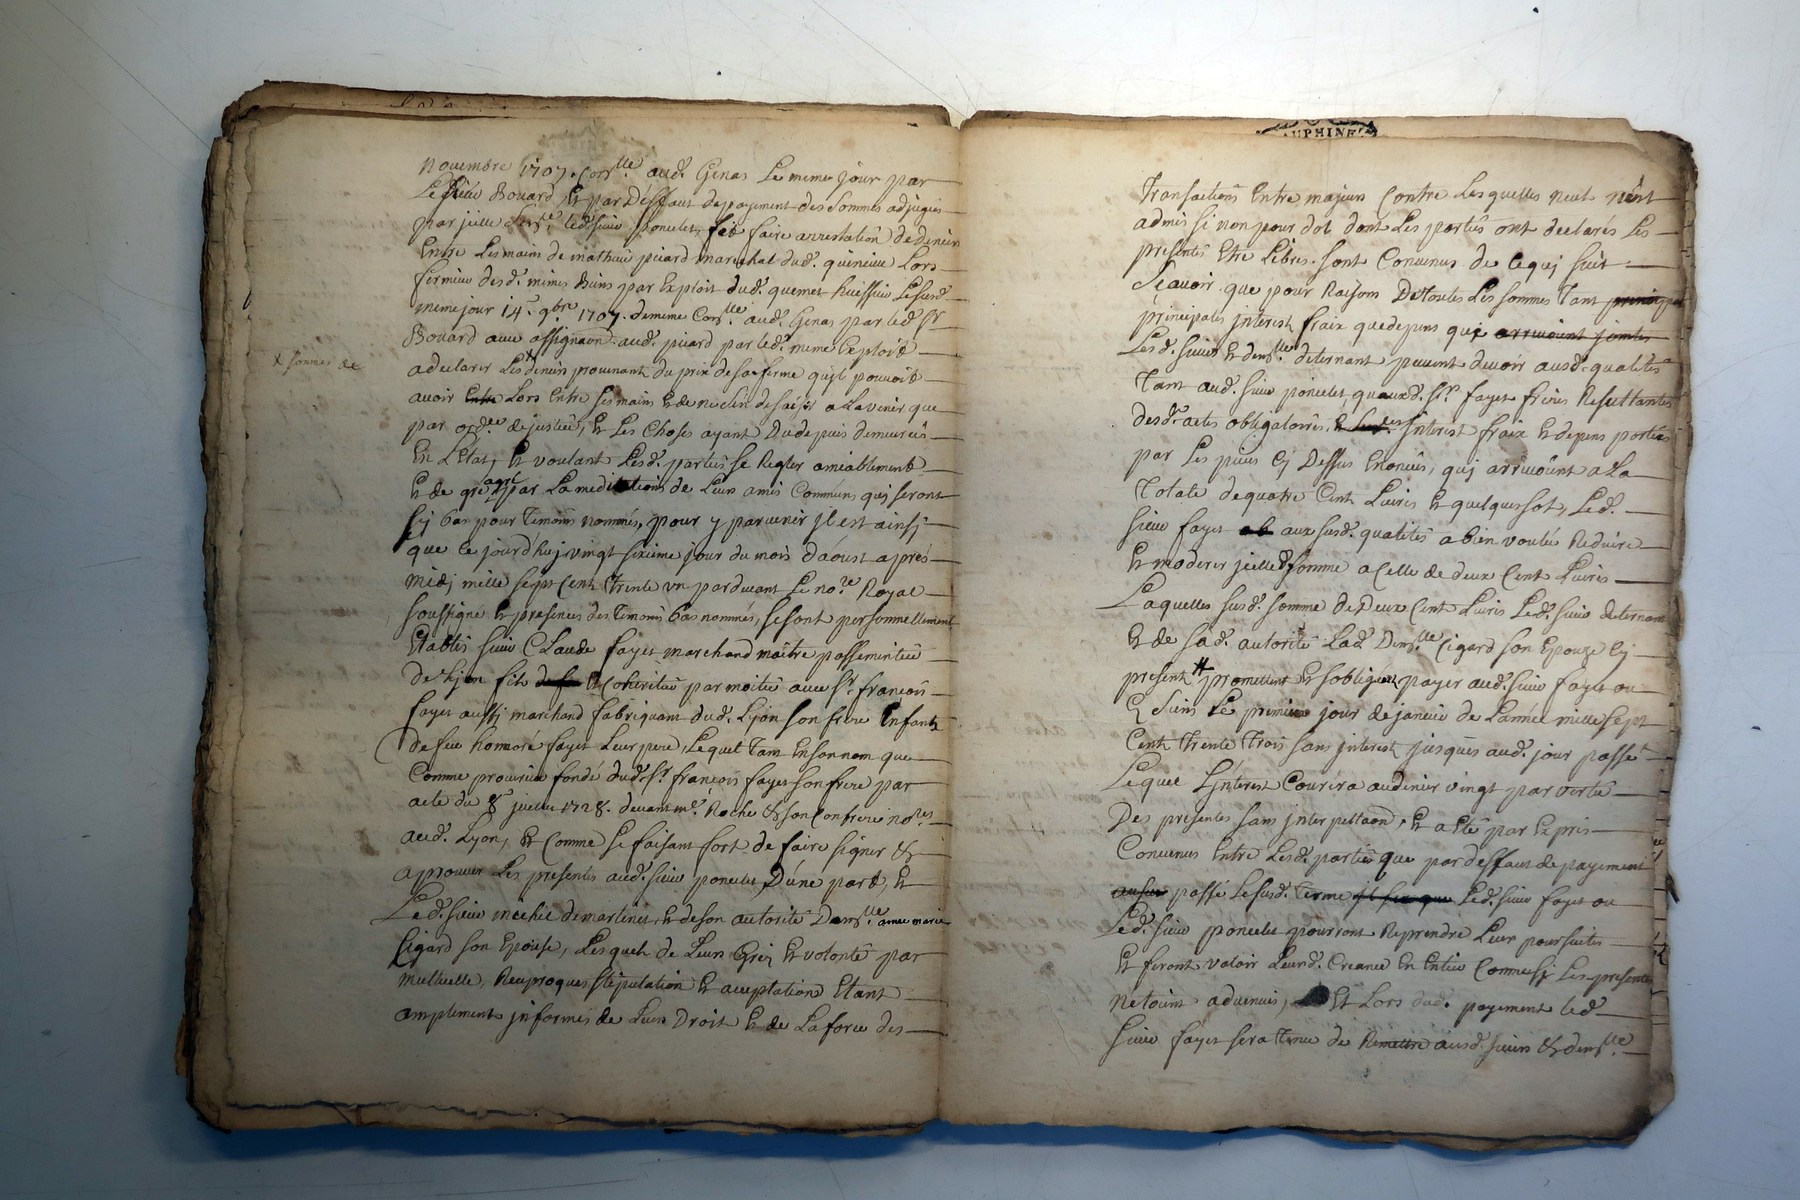 novembre 1707. Con.lle aud. Genas Le meme jour par
Le Bouard, et par Deffaut de payement des sommes adjugés
par jcelle led. sieur poncelet, fet faire arrestation de denier
Entre Les mains de mathieu picard marechal dud. quirieux Lors
fermier desd. mimes Biens par Exploit dud. quemet huissier Le susd.
meme jour 14.e 9bre 1707. de meme Con.lle aud. Genas par led. Sr
Bouard avec assignaon. aud. picard par led. meme Exploit
x sommes de
a declarer Les x denier provenant du prix de sa ferme qu'jl pouvoit
avoir Entre Lors Entre ses mains et de ne s'en desaisir a L'avenir que
par ord.ce de justice, et Les choses ayant Du depuis demeurés
En L'Etat, et voulant Lesd. parties se Regler amiablement
et de gré agré par La meditation de Leur amis Communs quj seront
Cy bas pour Temoins nommés, pour y parvenir jl est ainsj
que Ce jourd'huj vingt sixieme jour du mois d'aoust aprés
midj mille sept Cent Trente un pardevant Le no.re Royal
soussigné et presences des Temoins bas nommés, se sont personnellement
Etablis sieur Claude fayet marchand maitre passementier
de Lyon fils de f Coheritier par moitié avec Sr. francois
fayet aussj marchand fabriquant dud. Lyon son frere Enfants
de feu honnoré fayet Leur pere, Lequel Tant En son nom que
Comme procureur fondé dud. Sr. francois fayet son frere par
acte du 8.e 1728. devant me. Roche & son Confrere no.res
aud. Lyon, et Comme se faisant fort de faire signer &
aprouver Les presentes aud. sieur poncelet, D'une part, et
Led. sieur demartinet, et de son autorité Dem.lle anne marie
Cigard son Epouse, Lesquels de Leurs Gréz et volonté par
mutuelle, Reciproques stipulation et acceptations Etant
amplement jnformés de Leurs Droit et de La force des
AUPHINE
Transactions Entre majeurs Contre Lesquelles n'est
admis si non pour dol dont Les parties ont declarés Les
presentes Etre Libres. sont Convenus de Ce quj suit
Sçavoir que pour Raisons De Toutes Les sommes Tant
principales jnterest fraix que depens quj arrivoient jointes
Lesd. sieur et dem.lle peuvent devoir ausd. qualités
Tant aud. sieur poncelet, qu'auxd. Srs. fayet freres Resultantes
desd. actes obligatoires, jnterest fraix et depens portés
par Les pieces Cy Dessus Enoncés, quj arrivoint a La
Totale de quatre Cent Livres et quelques sols, Led.
sieur fayet aux susd. qualités a bien voulu Reduire
et moderer jcelle somme a Celle de deux Cent Livres
Laquelles susd. somme de Deux Cent Livres Led. sieur
et de sad. autorité Lad. Dem.lle Cigard son Epouze Cy
present # promettent et s'obligent payer aud. sieur fayet ou
Es siens Le premier jour de janvier de L'année mille sept
Cent Trente Trois sans jnterest jusques aud. jour passé
Lequel L'jnterest Courira au denier vingt par vertu
Des presentes sans jnterpellaon, et a Eté par Exprés
Convenus Entre Lesd. parties que par deffaut de payement
passé Le susd. Terme Led. sieur fayet ou
Led. sieur poncelet pourront Reprendre Leur poursuites
et feront valoir Leurd. Creance En Entier Comme si Les presentes
n'etoient advenus, et Lors dud. payement led.
sieur fayet sera tenu de Remettre ausd. sieurs & dem.lle